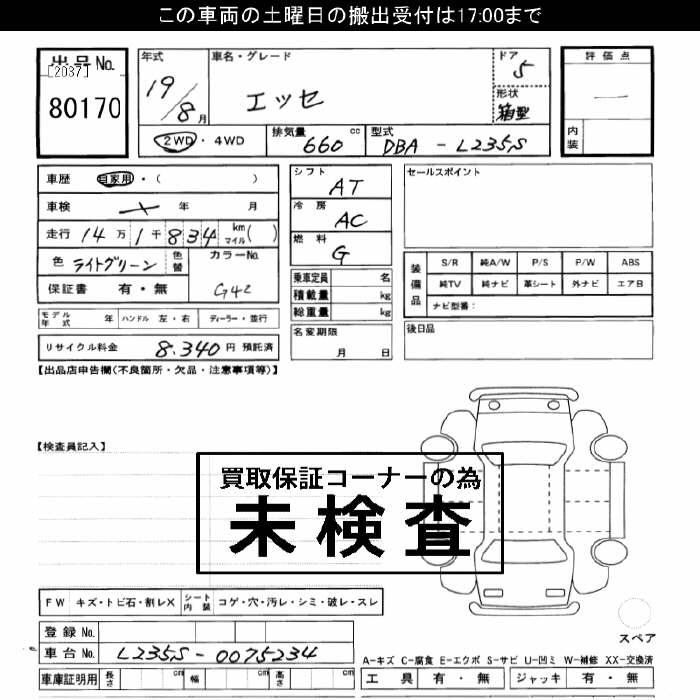 この車両の土曜日の搬出受付は17:00まで
出品No.
[2037]
80170
年式
19/8月
車名・グレード
エッセ
ドア
5
形状
箱型
評価点
—
内装
2WD・4WD
排気量
660 cc
型式
DBA - L235S
車歴
自家用・( )
車検
年 月
走行
14万1千834 km マイル( )
色
ライトグリーン
色替
カラーNo.
G42
保証書 有・無
モデル年式 年
ハンドル 左・右
ディーラー・並行
リサイクル料金 8.340円 預託済
シフト
AT
冷房
AC
燃料
G
乗車定員 名
積載量 kg
総重量 kg
名変期限
月 日
セールスポイント
装備品
S/R 純A/W P/S P/W ABS
純TV 純ナビ 革シート 外ナビ エアB
ナビ型番:
後日品
【出品店申告欄(不良箇所・欠品・注意事項等)】
【検査員記入】
買取保証コーナーの為
未検査
FW キズ・トビ石・割レX シート内装 コゲ・穴・汚レ・シミ・破レ・スレ
登録No.
車台No. L235S-0075234
車庫証明用 長さ cm 幅 cm 高さ cm
スペア
A-キズ C-腐食 E-エクボ S-サビ U-凹ミ W-補修 XX-交換済
工具 有・無 ジャッキ 有・無